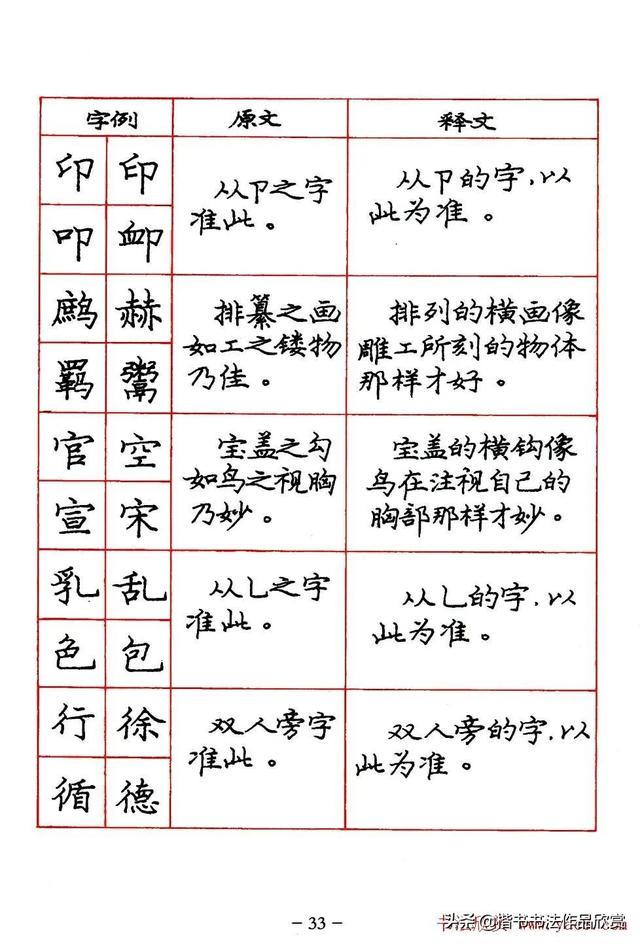 字例 原文 释文
印 印
叩 卹
从卩之字
准此。
从卩的字，以
此为准。
赫
鬻
排纂之画
如工之镂物
乃佳。
排列的横画像
雕工所刻的物体
那样才好。
官 空
宣 宋
宝盖之勾
如鸟之视胸
乃妙。
宝盖的横钩像
鸟在注视自己的
胸部那样才妙。
乳 乱
色 包
从乚之字
准此。
从乚的字，以
此为准。
行 徐
循 德
双人旁字
准此。
双人旁的字，以
此为准。
- 33 -
头条@楷书书法作品欣赏